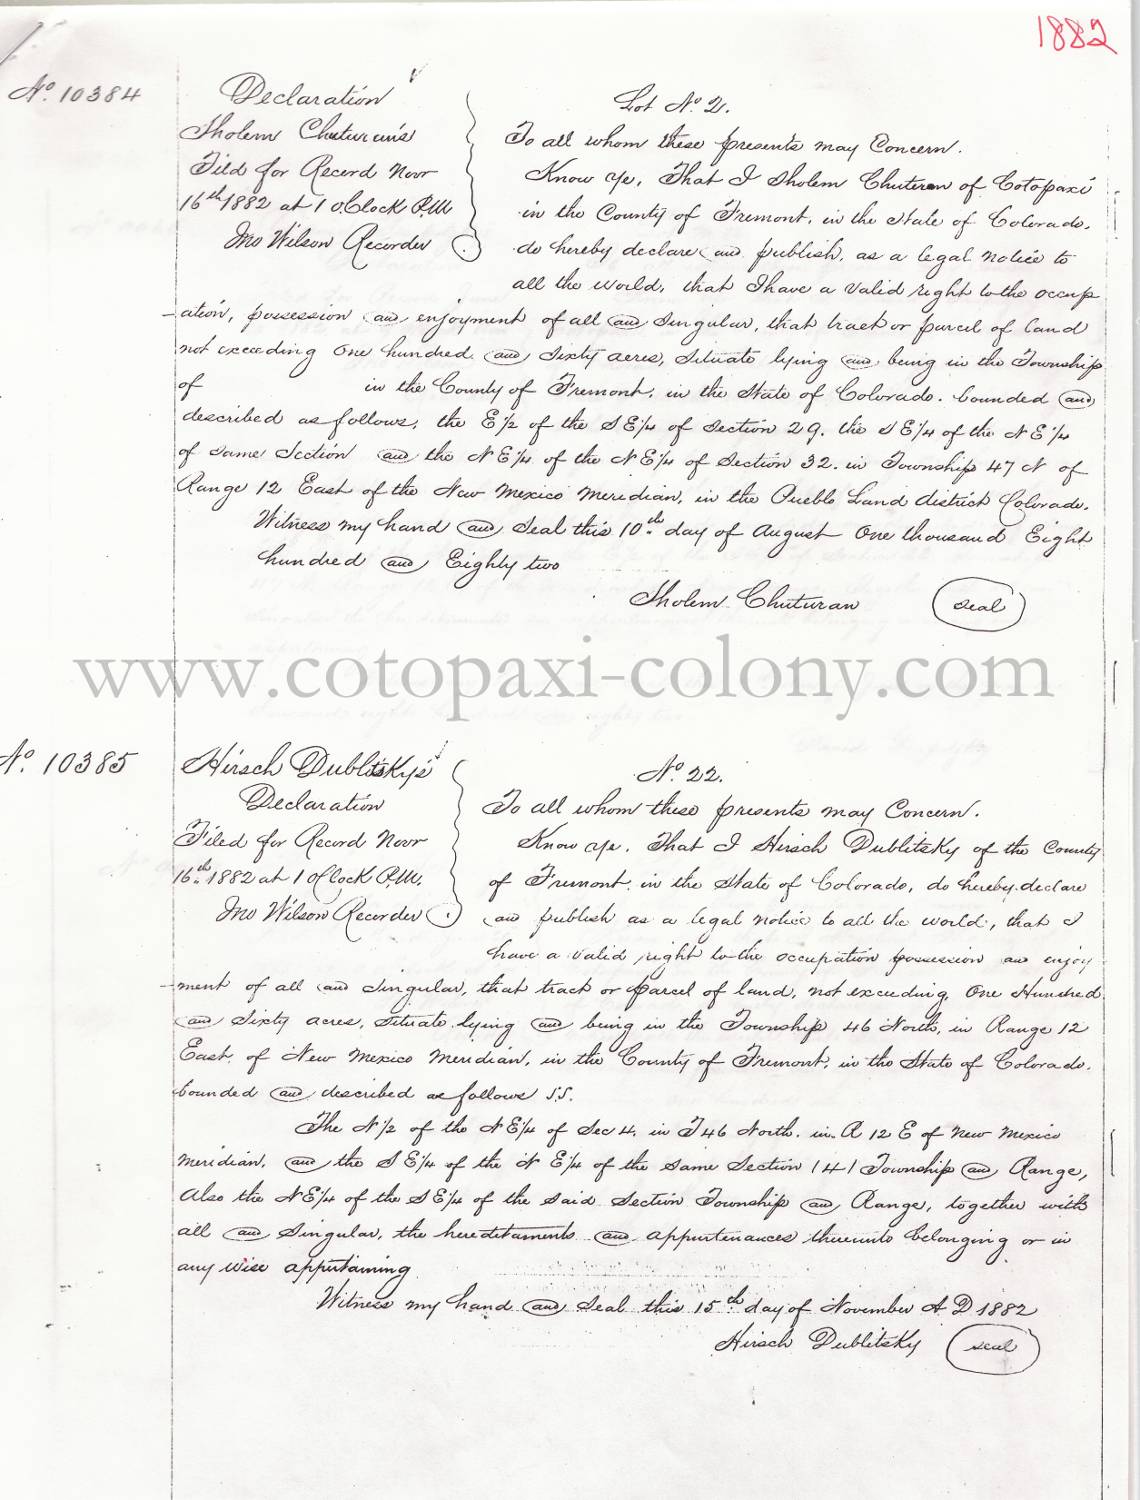 1882
No. 10384
Declaration
Sholem Chuturan's
Filed for Record Novr
16th 1882 at 1 oClock P.M.
Jno Wilson Recorder
Lot No. 2.
To all whom these presents may Concern.
Know ye, That I Sholem Chuteran of Cotopaxi
in the County of Fremont, in the State of Colorado,
do hereby declare and publish, as a legal notice to
all the world, that I have a valid right to the occup
-ation, possession and enjoyment of all and Singular, that tract or parcel of land
not exceeding One hundred and Sixty acres, Situate lying and being in the Township
of in the County of Fremont, in the State of Colorado. bounded and
described as follows, the E 1/2 of the S E 1/4 of Section 29. the S E 1/4 of the N E 1/4
of same Section and the N E 1/4 of the N E 1/4 of Section 32. in Township 47 N of
Range 12 East of the New Mexico Meridian, in the Pueblo Land district Colorado.
Witness my hand and Seal this 10th day of August One thousand Eight
hundred and Eighty two
Sholem Chuturan seal
www.cotopaxi-colony.com
No. 10385
Hirsch Dublitsky's
Declaration
Filed for Record Novr
16th 1882 at 1 oClock P.M.
Jno Wilson Recorder
No. 22.
To all whom these presents may Concern.
Know ye, That I Hirsch Dublitsky of the County
of Fremont in the State of Colorado, do hereby declare
and publish as a legal notice to all the world, that I
have a valid right to the occupation possession and enjoy
-ment of all and Singular, that tract or parcel of land, not exceeding, One Hundred
and Sixty acres, Situate lying and being in the Township 46 North, in Range 12
East of New Mexico Meridian, in the County of Fremont, in the State of Colorado.
bounded and described as follows S.S.
The N 1/2 of the N E 1/4 of Sec 4. in T 46 North. in R 12 E of New Mexico
Meridian, and the S E 1/4 of the N E 1/4 of the Same Section (4) Township and Range,
Also the N E 1/4 of the S E 1/4 of the Said Section Township and Range, together with
all and Singular, the hereditaments and appurtenances thereunto belonging or in
any wise appertaining
Witness my hand and Seal this 15th day of November A D 1882
Hirsch Dublitsky seal